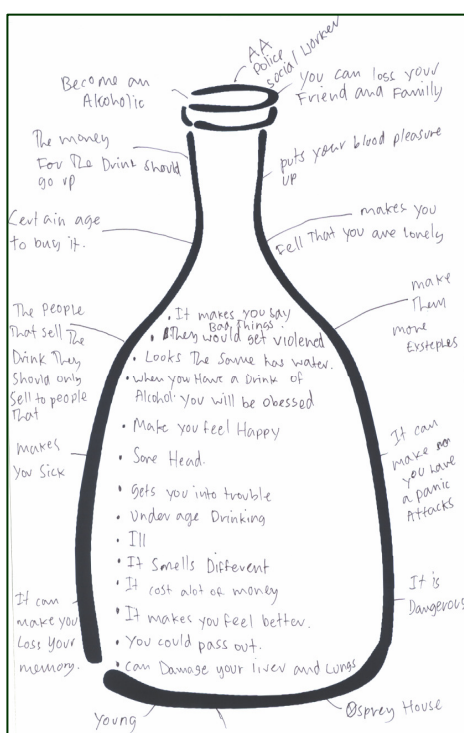 AA
Police
social worker
Become an
Alcoholic
You can loss your
Friend and Familly
The money
For The Drink Should
go up
puts your blood pleasure
up
Certain age
to buy it.
makes you
Fell That you are lonely
make
Them
more
The People
That sell The
Drink They
Should only
Sell to people
That
makes
You Sick
It can
make you
Loss Your
memory.
• It makes you say
Bad Things.
• They would get violened
• Looks The Same has water.
• when you Have a Drink of
Alcohol. You will be obessed
• Make you feel Happy
• Sore Head.
• gets you into trouble
• Under age Drinking
• Ill
• It Smells Different
• It cost alot of money
• It makes you feel better.
• You could pass out.
• can Damage your liver and Lungs
It can
make
you Have
a panic
Attacks
It is
Dangerous
Young
Osprey House